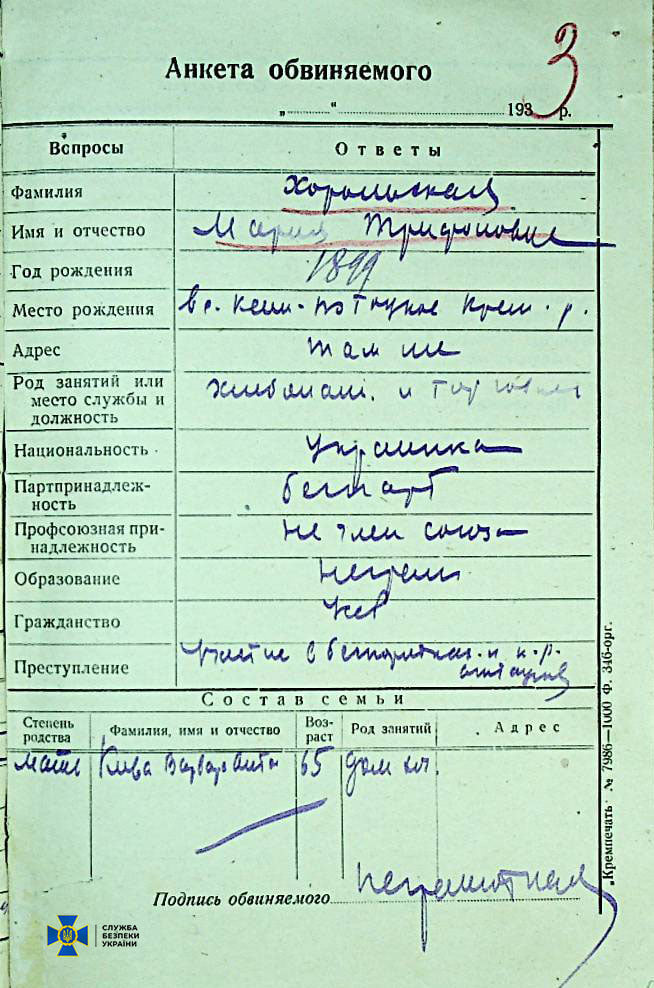 3
Анкета обвиняемого
„ “ 193 р.
Вопросы Ответы
Фамилия Хорольская
Имя и отчество Мария Трифоновна
Год рождения 1899
Место рождения в с. Крем. р.
Адрес там же
Род занятий или
место службы и
должность
хлебопаш. и торговля
Национальность украинка
Партпринадлеж-
ность
безпарт
Профсоюзная при-
надлежность
не член союза
Образование неграм
Гражданство
Преступление участие в и к.р.
агитации
Состав семьи
Степень
родства
Фамилия, имя и отчество Воз-
раст
Род занятий Адрес
Мать 65 дом хоз.
Подпись обвиняемого неграмотная
„Кремпечать" № 7986—1000 Ф. 346-орг.
СЛУЖБА
БЕЗПЕКИ
УКРАЇНИ